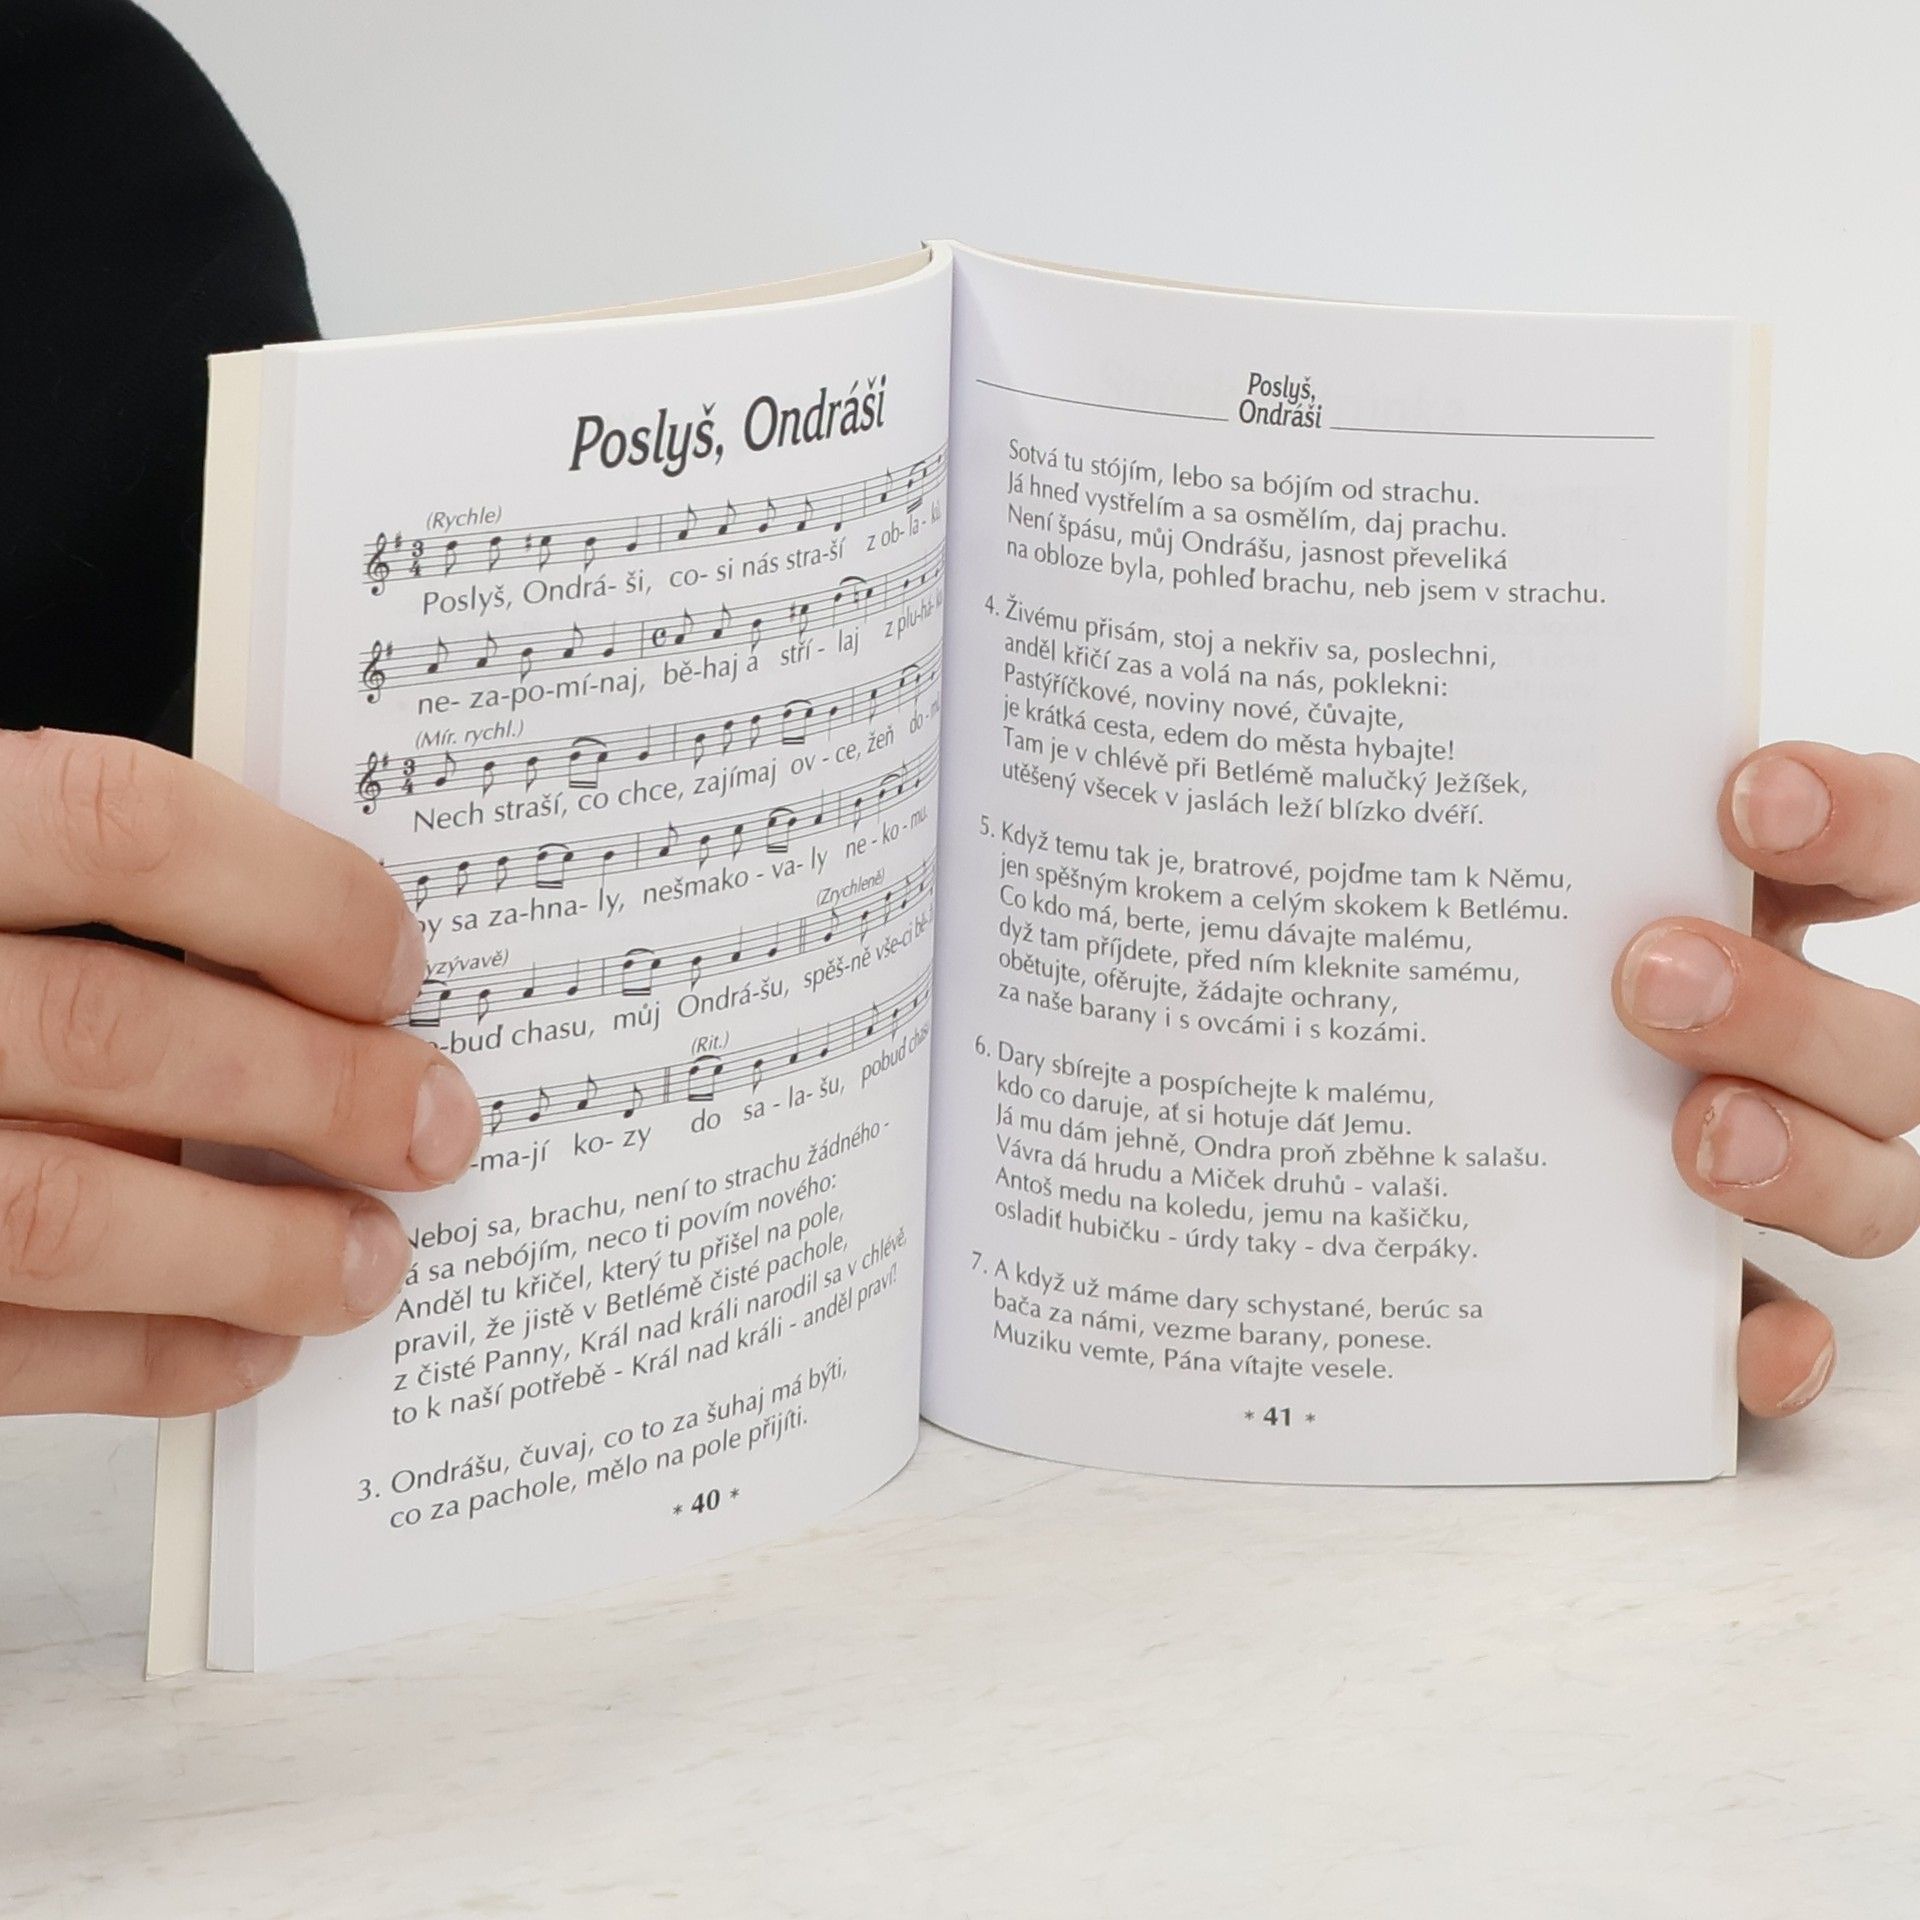 Poslyš, Ondráši
(Rychle)
Poslyš, Ondrá- ši, co- si nás stra-ší z ob- la-
ne- za-po-mí-naj, bě-haj a stří - laj z plu-há-
(Mír. rychl.)
Nech straší, co chce, zajímaj ov - ce, žeň do-
sa za-hna- ly, nešmako - va- ly ne - ko - mu.
(Zrychleně)
-buď chasu, můj Ondrá-šu, spěš-ně vše-ci
(Rit.)
-ma-jí ko- zy do sa - la- šu, pobuď
Neboj sa, brachu, není to strachu žádného -
sa nebójím, neco ti povím nového:
Anděl tu křičel, který tu přišel na pole,
pravil, že jistě v Betlémě čisté pachole,
z čisté Panny, Král nad králi narodil sa v chlévě,
to k naší potřebě - Král nad králi - anděl praví!
3. Ondrášu, čuvaj, co to za šuhaj má býti,
co za pachole, mělo na pole přijíti.
* 40 *
Poslyš,
Ondráši
Sotvá tu stójím, lebo sa bójím od strachu.
Já hneď vystřelím a sa osmělím, daj prachu.
Není špásu, můj Ondrášu, jasnost převeliká
na obloze byla, pohleď brachu, neb jsem v strachu.
4. Živému přisám, stoj a nekřiv sa, poslechni,
anděl křičí zas a volá na nás, poklekni:
Pastýříčkové, noviny nové, čůvajte,
je krátká cesta, edem do města hybajte!
Tam je v chlévě při Betlémě malučký Ježíšek,
utěšený všecek v jaslách leží blízko dvéří.
5. Když temu tak je, bratrové, pojďme tam k Němu,
jen spěšným krokem a celým skokem k Betlému.
Co kdo má, berte, jemu dávajte malému,
dyž tam příjdete, před ním kleknite samému,
obětujte, ofěrujte, žádajte ochrany,
za naše barany i s ovcámi i s kozámi.
6. Dary sbírejte a pospíchejte k malému,
kdo co daruje, ať si hotuje dáť Jemu.
Já mu dám jehně, Ondra proň zběhne k salašu.
Vávra dá hrudu a Miček druhů - valaši.
Antoš medu na koledu, jemu na kašičku,
osladiť hubičku - úrdy taky - dva čerpáky.
7. A když už máme dary schystané, berúc sa
bača za námi, vezme barany, ponese.
Muziku vemte, Pána vítajte vesele.
* 41 *